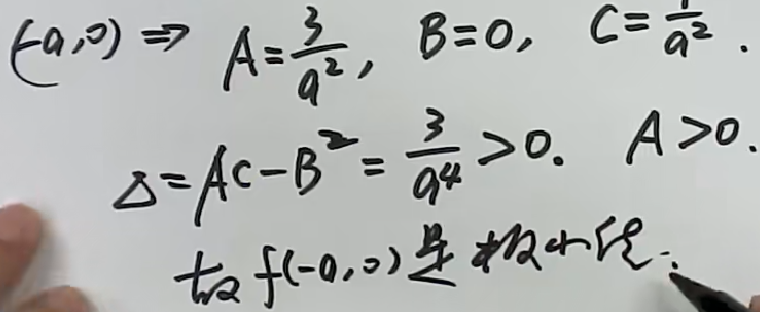 (-a,0) ⇒ A=3/a², B=0, C=1/a².
Δ=AC-B²=3/a⁴>0. A>0.
故f(-a,0)是极小值.